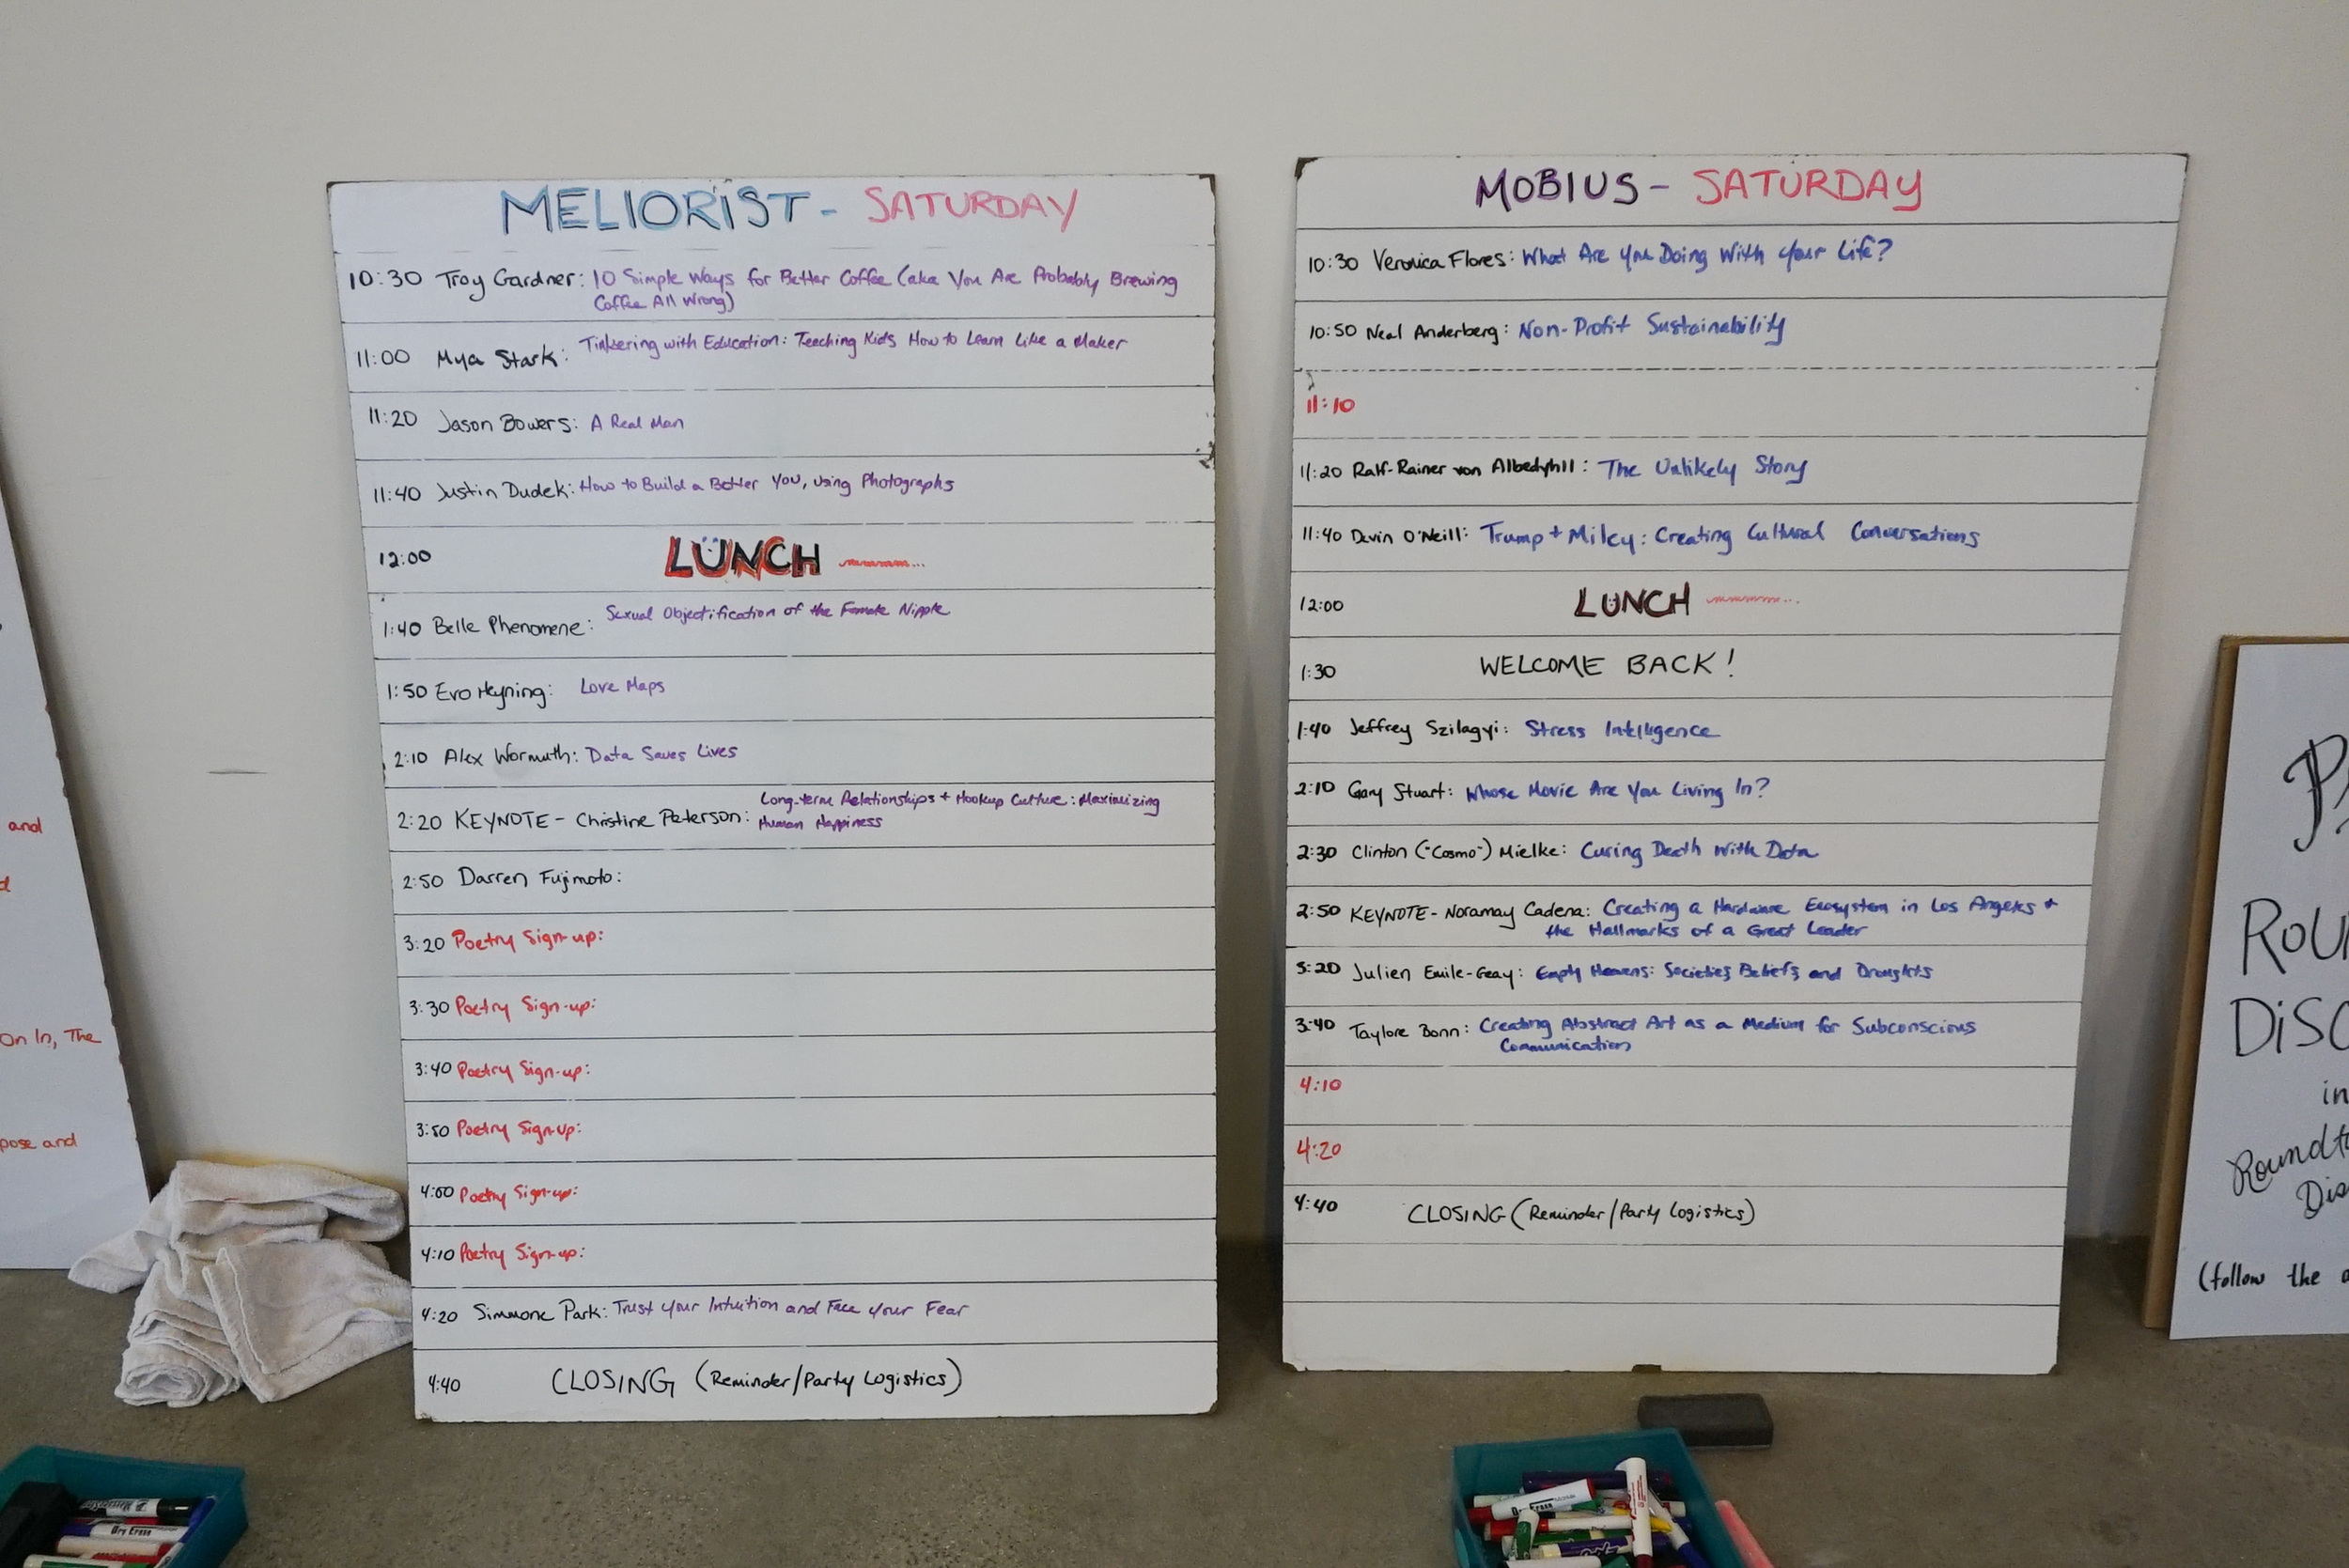 MELIORIST - SATURDAY
10:30 Troy Gardner: 10 Simple Ways for Better Coffee (aka You Are Probably Brewing
Coffee All Wrong)
11:00 Mya Stark: Tinkering with Education: Teaching Kids How to Learn Like a Maker
11:20 Jason Bowers: A Real Man
11:40 Justin Dudek: How to Build a Better You, using Photographs
12:00 LUNCH mmmmm...
1:40 Belle Phenomene: Sexual Objectification of the Female Nipple
1:50 Evo Heyning: Love Maps
2:10 Alex Wormuth: Data Saves Lives
2:20 KEYNOTE - Christine Peterson: Long-term Relationships + Hookup Culture: Maximizing
Human Happiness
2:50 Darren Fujimoto:
3:20 Poetry Sign-up:
3:30 Poetry Sign-up:
3:40 Poetry Sign-up:
3:50 Poetry Sign-up:
4:00 Poetry Sign-up:
4:10 Poetry Sign-up:
4:20 Simmone Park: Trust your Intuition and Face your Fear
4:40 CLOSING (Reminder/Party Logistics)
MOBIUS - SATURDAY
10:30 Veronica Flores: What Are You Doing With your Life?
10:50 Neal Anderberg: Non-Profit Sustainability
11:10
11:20 Ralf-Rainer von Albedyhll: The Unlikely Story
11:40 Devin O'Neill: Trump + Miley: Creating Cultural Conversations
12:00 LUNCH mmmmm...
1:30 WELCOME BACK!
1:40 Jeffrey Szilagyi: Stress Intelligence
2:10 Gary Stuart: Whose Movie Are You Living In?
2:30 Clinton ("Cosmo") Mielke: Curing Death With Data
2:50 KEYNOTE - Noramay Cadena: Creating a Hardware Ecosystem in Los Angeles +
the Hallmarks of a Great Leader
3:20 Julien Emile-Geay: Empty Heavens: Societies, Beliefs, and Droughts
3:40 Taylore Bonn: Creating Abstract Art as a Medium for Subconscious
Communication
4:10
4:20
4:40 CLOSING (Reminder/Party Logistics)
and
On In, The
pose and
in
(follow the